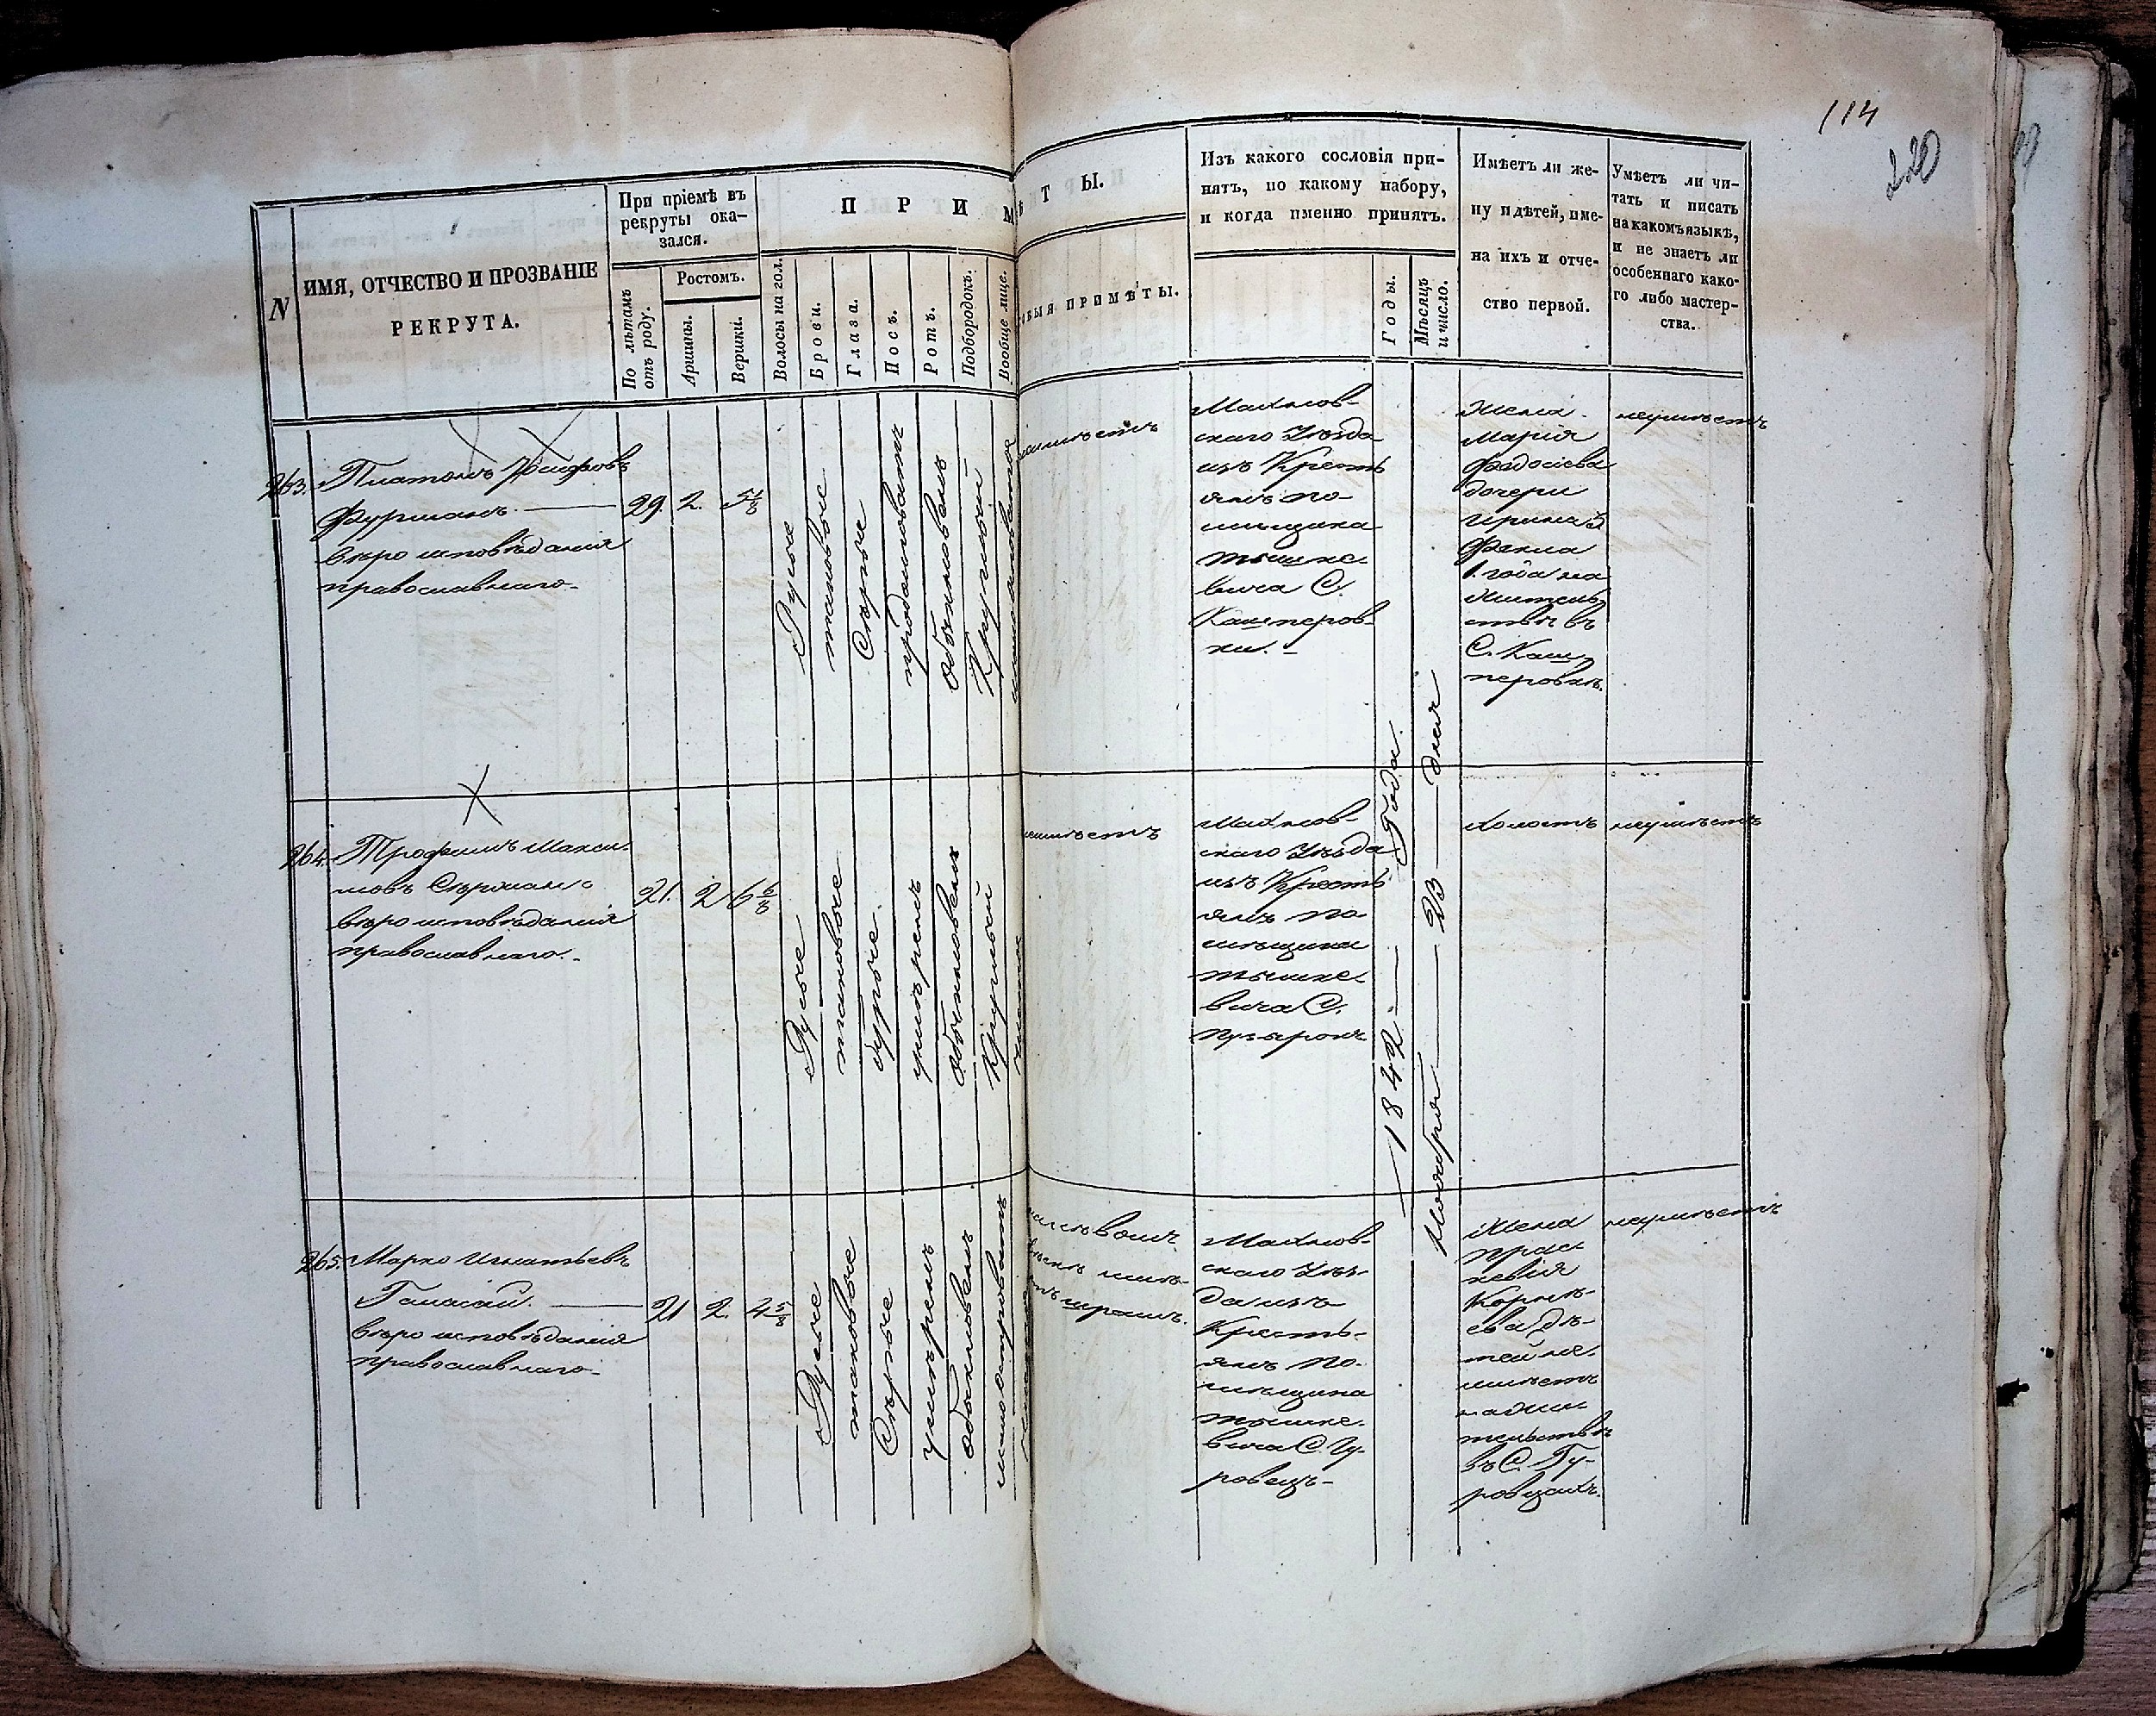 114
220
N
ИМЯ, ОТЧЕСТВО И ПРОЗВАНІЕ
РЕКРУТА.
При пріемѣ въ
рекруты ока-
зался.
По лѣтамъ
отъ роду.
Ростомъ.
Аршины.
Вершки.
П Р И М
Ѣ Т Ы.
Волосы на гол.
Брови.
Глаза.
Носъ.
Ротъ.
Подбородокъ.
Вообще лице.
ПРИМѢТЫ.
Изъ какого сословія при-
нятъ, по какому набору,
и когда именно принятъ.
Годы.
Мѣсяцъ
и число.
Имѣетъ ли же-
ну и дѣтей, име-
на ихъ и отче-
ство первой.
Умѣетъ ли чи-
тать и писать
на какомъ языкѣ,
и не знаетъ ли
особеннаго како-
го либо мастер-
ства.
263.
Платонъ
Фурманъ.
вѣро исповѣданія
православнаго
29. 2.
Русые
таковые
Сѣрые
продолговатъ
обыкновенъ
Круглый
Махнов-
скаго Уѣзда
изъ Кресть
янъ по-
мѣщика
тышке-
вича С.
Кашперов-
ки.
Жена
Марія
Федосіева
дочери
Ирина 5
Фекла
1. года на
жительс
твѣ въ
С. Каш
перовкѣ.
неумѣетъ
264.
Трофимъ Макси-
мовъ
вѣро исповѣданія
православнаго.
21. 2 6 6/8
Русые
таковые
умѣренъ
обыкновенъ
Круглый
неимѣетъ
Махнов-
скаго Уѣзда
изъ Кресть
янъ по
мѣщика
тышке
вича С.
1842 Года.
Ноября 23 дня
холостъ
неумѣетъ
265.
Марко Игнатьевъ
вѣро исповѣданія
православнаго
21 2. 4 5/8
Русые
таковые
Сѣрые
умѣренъ
обыкновенъ
Махнов-
скаго Уѣз-
да изъ
Кресть-
янъ по-
мѣщика
тышке-
вича С. Гу-
ровецъ
Жена
прас
кевія
Корнѣ-
ева дѣ-
тей не-
имѣетъ
на жи
тельствѣ
въ С. Гу-
ровцахъ.
неумѣетъ